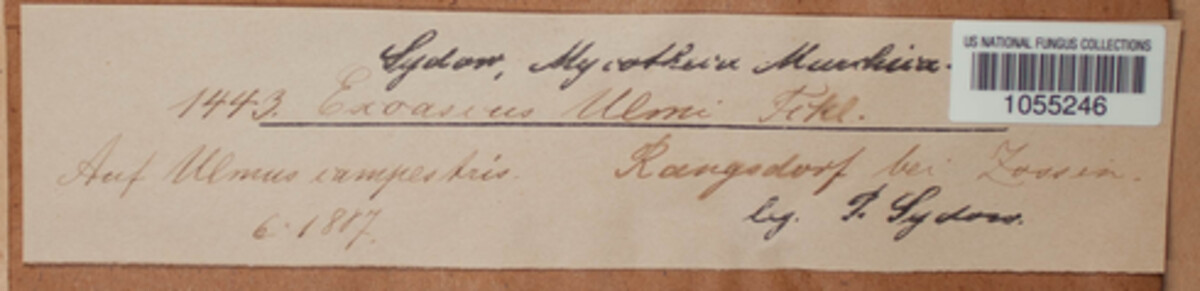 Sydow, Mycotheca Marchica.
US NATIONAL FUNGUS COLLECTIONS
1055246
1443. Exoascus Ulmi Fckl.
Auf Ulmus campestris. Rangsdorf bei Zossen.
6. 1887. leg. P. Sydow.